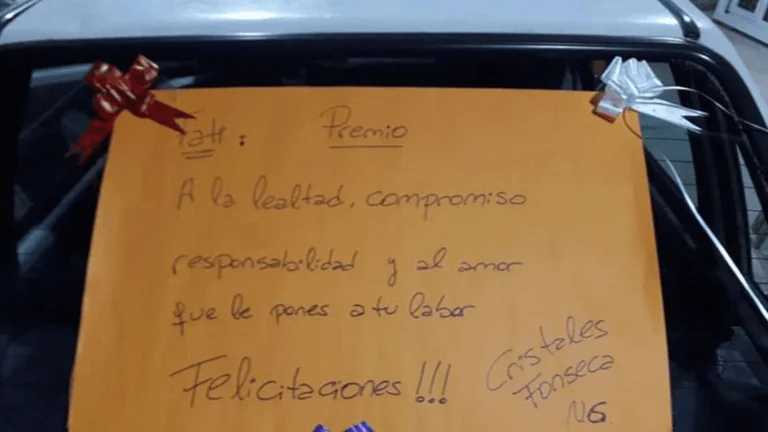 Tati: Premio
A la lealtad, compromiso
responsabilidad y al amor
que le pones a tu labor
Felicitaciones!!!
Cristales
Fonseca
N.G.